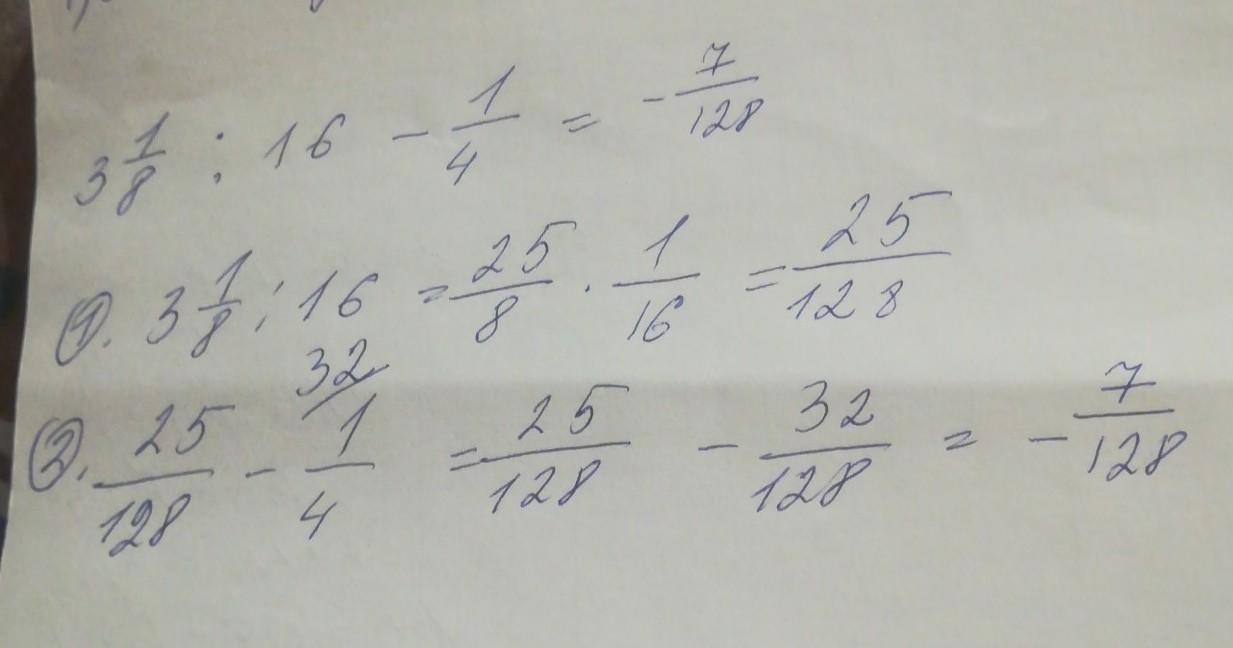 3 1/8 : 16 - 1/4 = - 7/128
①. 3 1/8 : 16 = 25/8 · 1/16 = 25/128
②. 25/128 - 32/ 1/4 = 25/128 - 32/128 = - 7/128